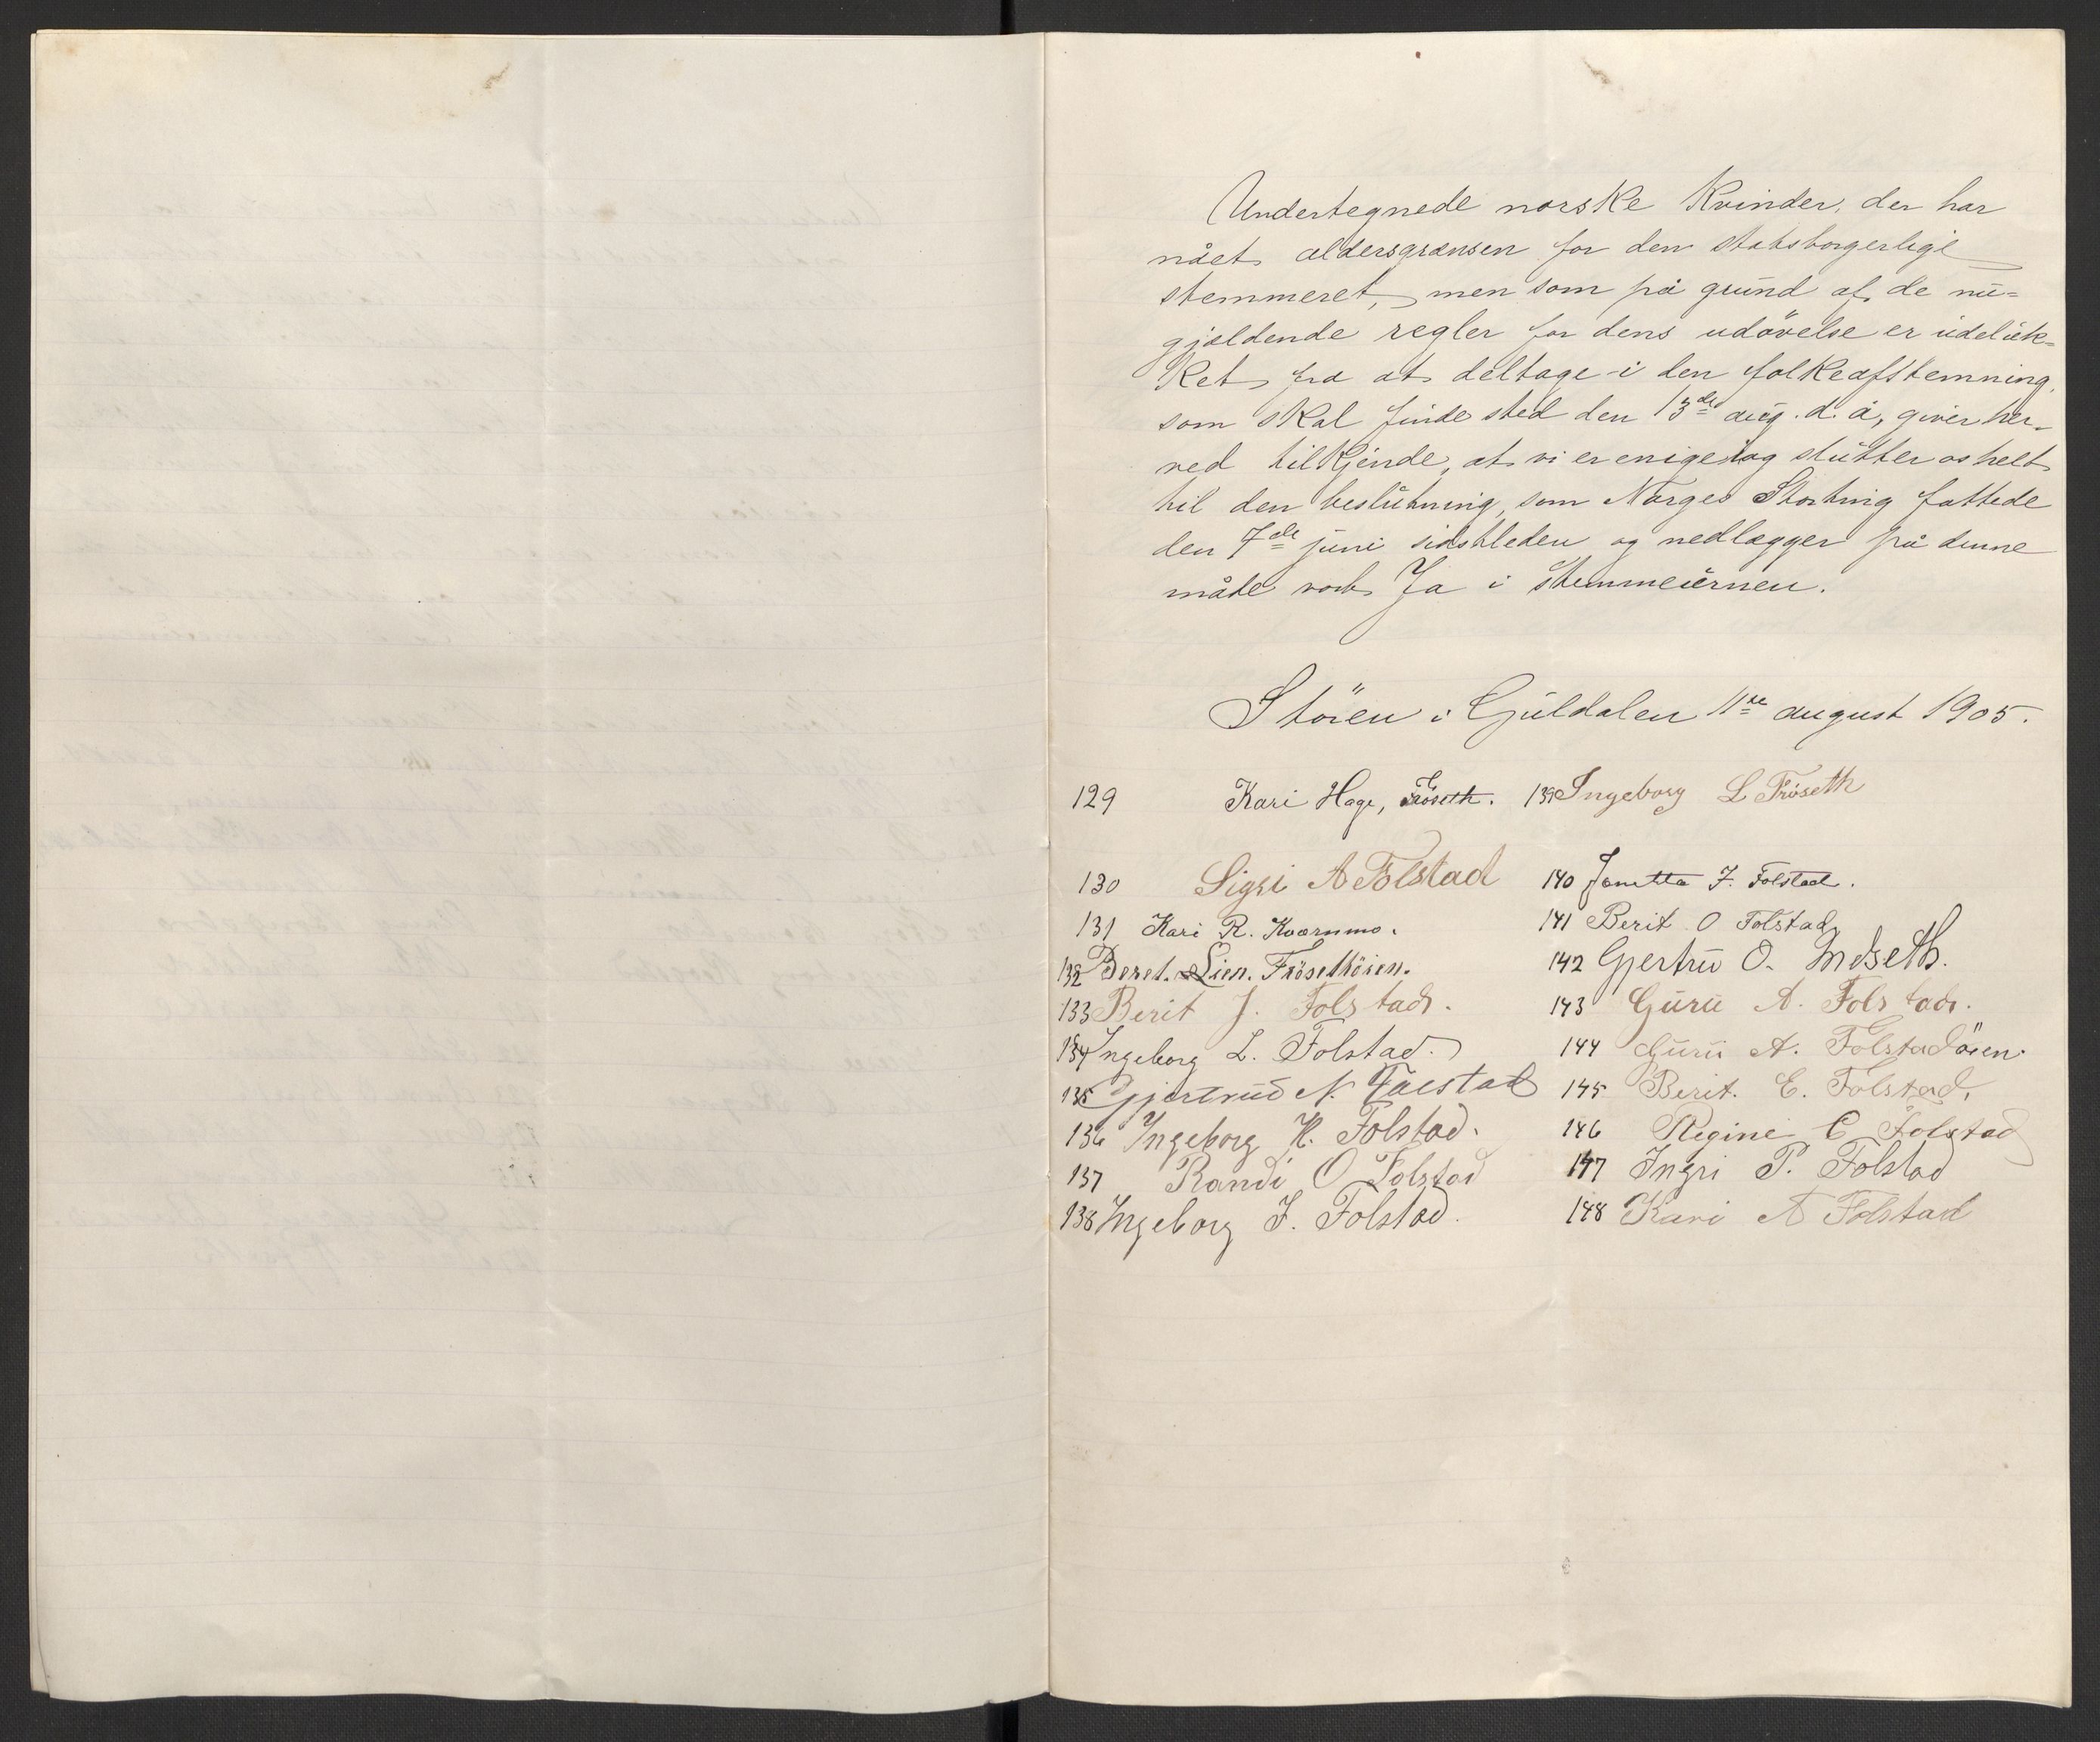 Undertegnede norske Kvinder, der har
nået aldersgrænsen for den statsborgerlige
stemmeret, men som på grund af de nu=
gjældende regler for dens udövelse er udeluk=
ket fra at deltage i den folkeafstemning,
som skal finde sted den 13de aug. d. å, giver her-
ved tilkjende, at vi er enige i og slutter os helt
til den beslutning, som Norges Storting fattede
den 7de juni sidstleden og nedlægger på denne
måde vort Ja i stemmeurnen.
Stören i Guldalen 11te august 1905.
129 Kari Hage, Fröseth.
130 Sigri A Folstad
131 Kari R. Kværnmo.
132 Beret. Lien. Frösethöien.
133 Berit J. Folstad.
134 Ingeborg L. Folstad.
135 Gjertrud N. Folstad
136 Ingeborg K. Folstad.
137 Randi O Folstad
138 Ingeborg J. Folstad.
139 Ingeborg L Fröseth
140 Janetta J. Folstad.
141 Berit O Folstad
142 Gjertru O. Indseth.
143 Guru A. Folstad.
144 Guru A. Folstadöien.
145 Berit. E. Folstad.
146 Regine E Folstad
147 Ingri P. Folstad
148 Kari A Folstad